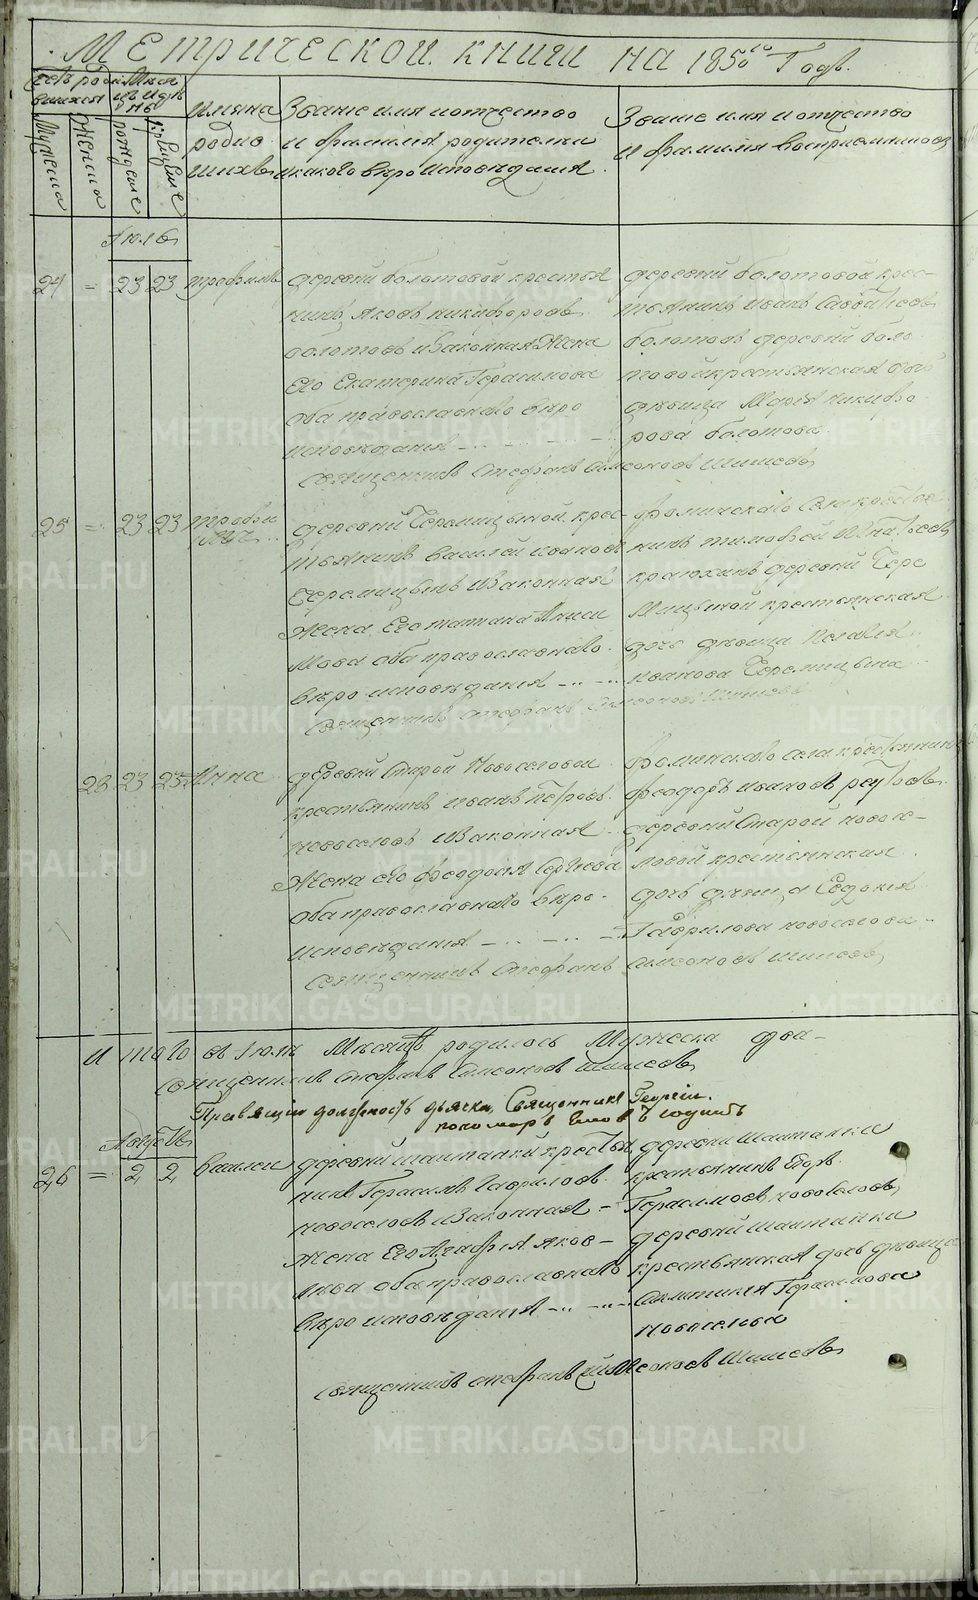 Метрической книги на 1850го Годъ
Счетъ родившихся
Мужеска
Женска
Месяцъ и день
рождение
крещение
Имяна родившихъ
Звание имя и отчество
и фамилия родителей
и какого вѣроисповеданiя
Звание имя и отчество
и фамилия восприемников
Июль
24 = 23 23 Трофимъ
деревни болотовой крестья
нинъ Яковъ Никифоровъ
болотовъ и Законная Жена
Его Екатерина Герасимова
оба православнаго вѣро
исповѣданiя
деревни болотовой крес-
тьянинъ Иванъ Савватеевъ
болотовъ деревни боло
товой крестьянская дочь
дѣвица Марiя никифо-
рова болотова
Священникъ Стефанъ Симеоновъ Шишевъ
25 = 23 23 трофимъ
деревни Черемицыной крес-
тьянинъ Василей ивановъ
Черемицынъ и Законная
Жена Его татiана Аниси
мова оба православнаго
вѣро исповѣданiя
фоминскаго Села
тимофей Игнатьевъ
деревни Чере
мицыной крестьянская
дочь дѣвица Пелагiя
иванова Черемицына
Священникъ Стефанъ Симеоновъ Шишевъ
28 23 23 Анна
деревни Старой Новоселовой
крестьянинъ иванъ Петровъ
новоселовъ и Законная
Жена его феодосiя Сергиева
оба православнаго вѣро-
исповѣданiя
фоминскаго села
феодоръ ивановъ реутовъ
деревни Старой новосе-
ловой крестьянская
дочь дѣвица Евдокия
Гаврилова новоселова
Священникъ Стефанъ Симеоновъ Шишевъ
И того въ Июле Месяце родилось Мужеска два
Священникъ Стефанъ Симеоновъ Шишевъ
Правящiй должность дьячка, Священникъ Георгiй
пономарь
Августъ
26 = 2 2 Василей
деревни шайтанки крестья
нинъ Герасимъ Гавриловъ
новоселовъ и Законная
Жена Его Агафiя яков-
лева оба православнаго
вѣро исповѣданiя
деревни шайтанки
крестьянинъ Егоръ
Герасимовъ новоселовъ
деревни шайтанки
крестьянская дочь дѣвица
Герасимова
новоселова
Священникъ Стефанъ Симеоновъ Шишевъ
METRIKI.GASO-URAL.RU